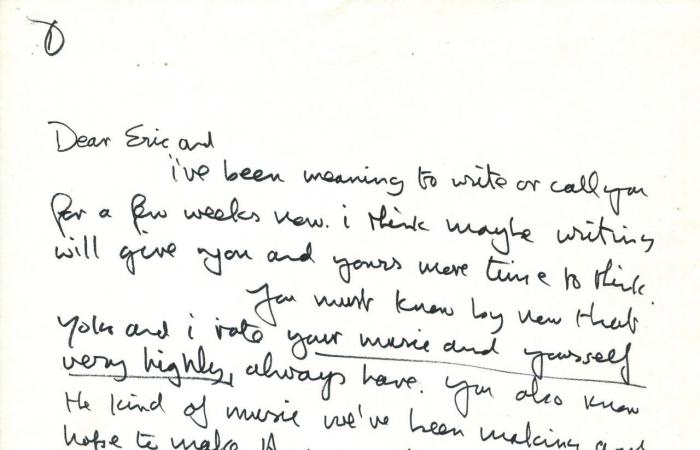 ①
Dear Eric and
i've been meaning to write or call you
for a few weeks now. i think maybe writing
will give you and yours more time to think.
You must know by now that
Yoko and i rate your music and yourself
very highly, always have. You also know
the kind of music we've been making and
hope to make.